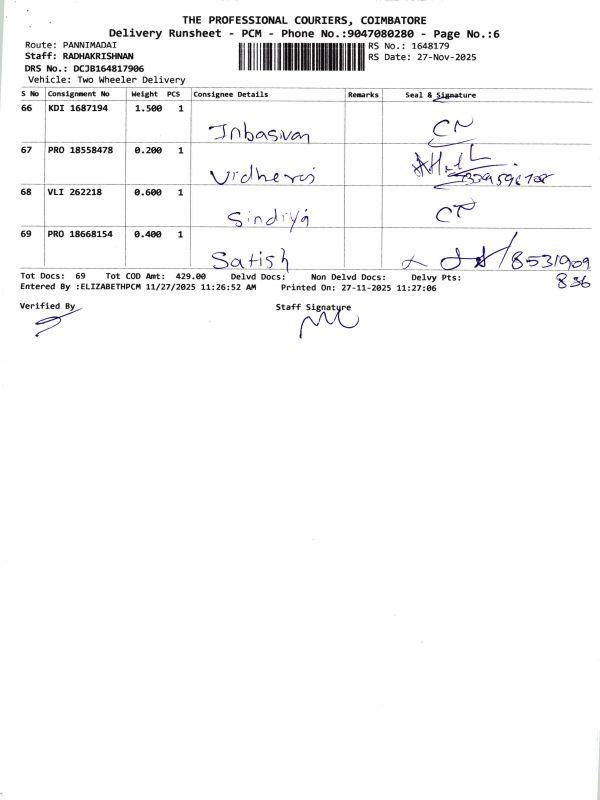 THE PROFESSIONAL COURIERS, COIMBATORE
Delivery Runsheet - PCM - Phone No.:9047080280 - Page No.:6
Route: PANNIMADAI RS No.: 1648179
Staff: RADHAKRISHNAN RS Date: 27-Nov-2025
DRS No.: DCJB164817906
Vehicle: Two Wheeler Delivery
S No Consignment No Weight PCS Consignee Details Remarks Seal & Signature
66 KDI 1687194 1.500 1
Inbasivan
67 PRO 18558478 0.200 1
68 VLI 262218 0.600 1
Sindiya
69 PRO 18668154 0.400 1
Satish 8531909
836
Tot Docs: 69 Tot COD Amt: 429.00 Delvd Docs: Non Delvd Docs: Delvy Pts:
Entered By :ELIZABETHPCM 11/27/2025 11:26:52 AM Printed On: 27-11-2025 11:27:06
Verified By Staff Signature